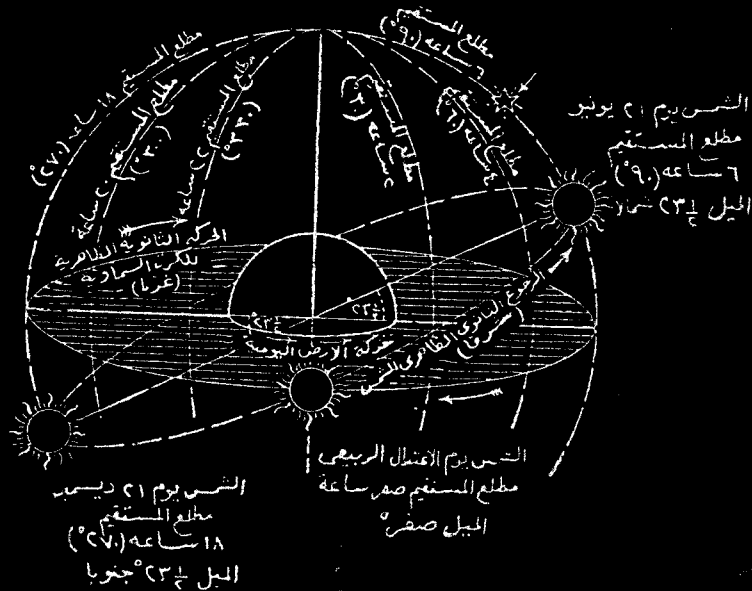 مطلع المستقيم ١٨ ساعه (٢٧٠°)
مطلع المستقيم ٢٠ ساعة
(٣٠٠°)
مطلع المستقيم ٢٢ ساعه
(٣٣٠°)
مطلع المستقيم
٢ ساعه (٣٠°)
مطلع المستقيم
٤ ساعه (٦٠°)
مطلع المستقيم
٦ ساعه (٩٠°)
الشمس يوم ٢١ يونيو
مطلع المستقيم
٦ ساعه (٩٠°)
الميل ٢٣ ١/٢ شمالا
الحركة الثانوية الظاهرية
للكرة السماوية
(غربا)
٢٣ ١/٢°
٢٣ ١/٢°
حركة الأرض اليومية
الظاهرى للشمس
(شرقا)
الشمس يوم الاعتدال الربيعى
مطلع المستقيم صفر ساعة
الميل صفر°
الشمس يوم ٢١ ديسمبر
مطلع المستقيم
١٨ ساعه (٢٧٠°)
الميل ٢٣ ١/٢° جنوبا